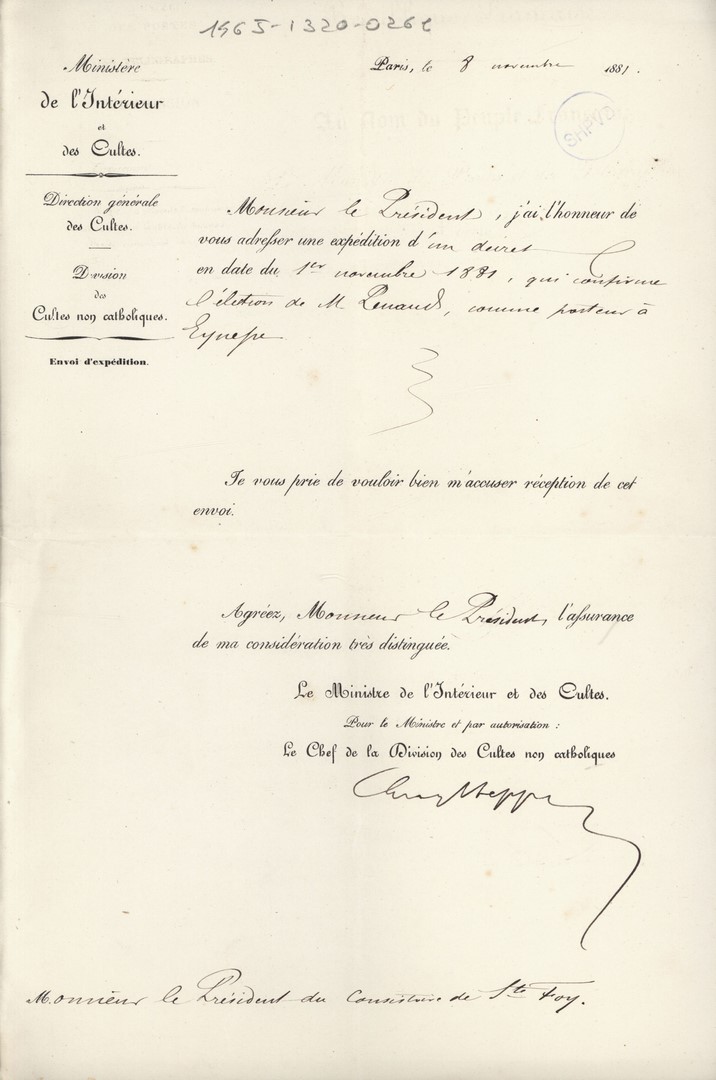 1965-1320-0262
Ministère
de l'Intérieur
et
des Cultes.
Direction générale
des Cultes.
Division
des
Cultes non catholiques.
Envoi d'expédition.
Paris, le 8 novembre 1881.
SHPVD
Monsieur le Président, j'ai l'honneur de
vous adresser une expédition d'un décret
en date du 1er novembre 1881, qui confirme
l'élection de M. Renaud, comme pasteur à
Eynesse
Je vous prie de vouloir bien m'accuser réception de cet
envoi.
Agréez, Monsieur le Président, l'assurance
de ma considération très distinguée.
Le Ministre de l'Intérieur et des Cultes.
Pour le Ministre et par autorisation :
Le Chef de la Division des Cultes non catholiques
Monsieur le Président du Consistoire de Ste Foy.